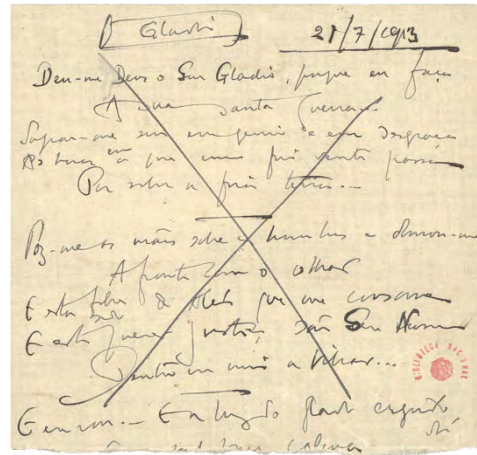 Gladio
21/7/1913
Deu-me Deus o Seu Gladio, porque eu faça
A sua santa guerra.
Sagrou-me seu em genio e em desgraça
Ás horas em que um frio vento passa
Por sobre a fria terra...
Poz-me as mãos sobre os hombros e doirou-me
A fronte com o olhar
E esta febre de Além que me consome
E este querer justiça, são Seu Nome
Dentro em mim a vibrar...
E eu vou... E a luz do gladio erguido dá
calma
BIBLIOTECA NACIONAL